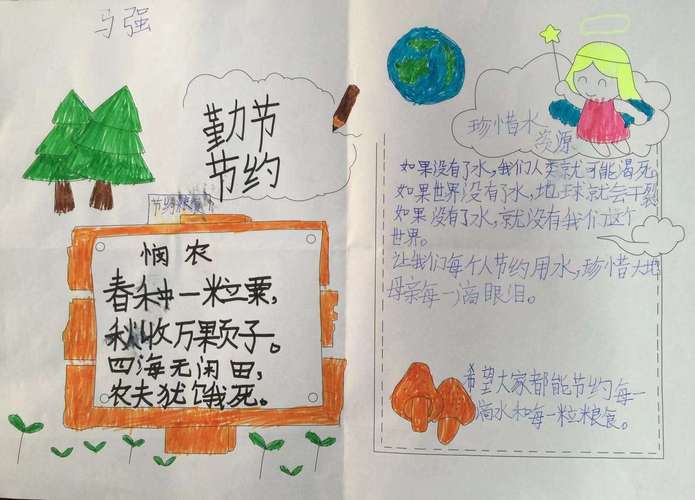 马强
勤节
节约
节约粮食
悯农
春种一粒粟,
秋收万颗子。
四海无闲田,
农夫犹饿死。
珍惜水
资源
如果没有了水,我们人类就可能渴死
如果世界没有了水,地球就会干裂
如果没有了水,就没有我们这个
世界。
让我们每个人节约用水,珍惜大地
母亲每一滴眼泪。
希望大家都能节约每一
滴水和每一粒粮食。